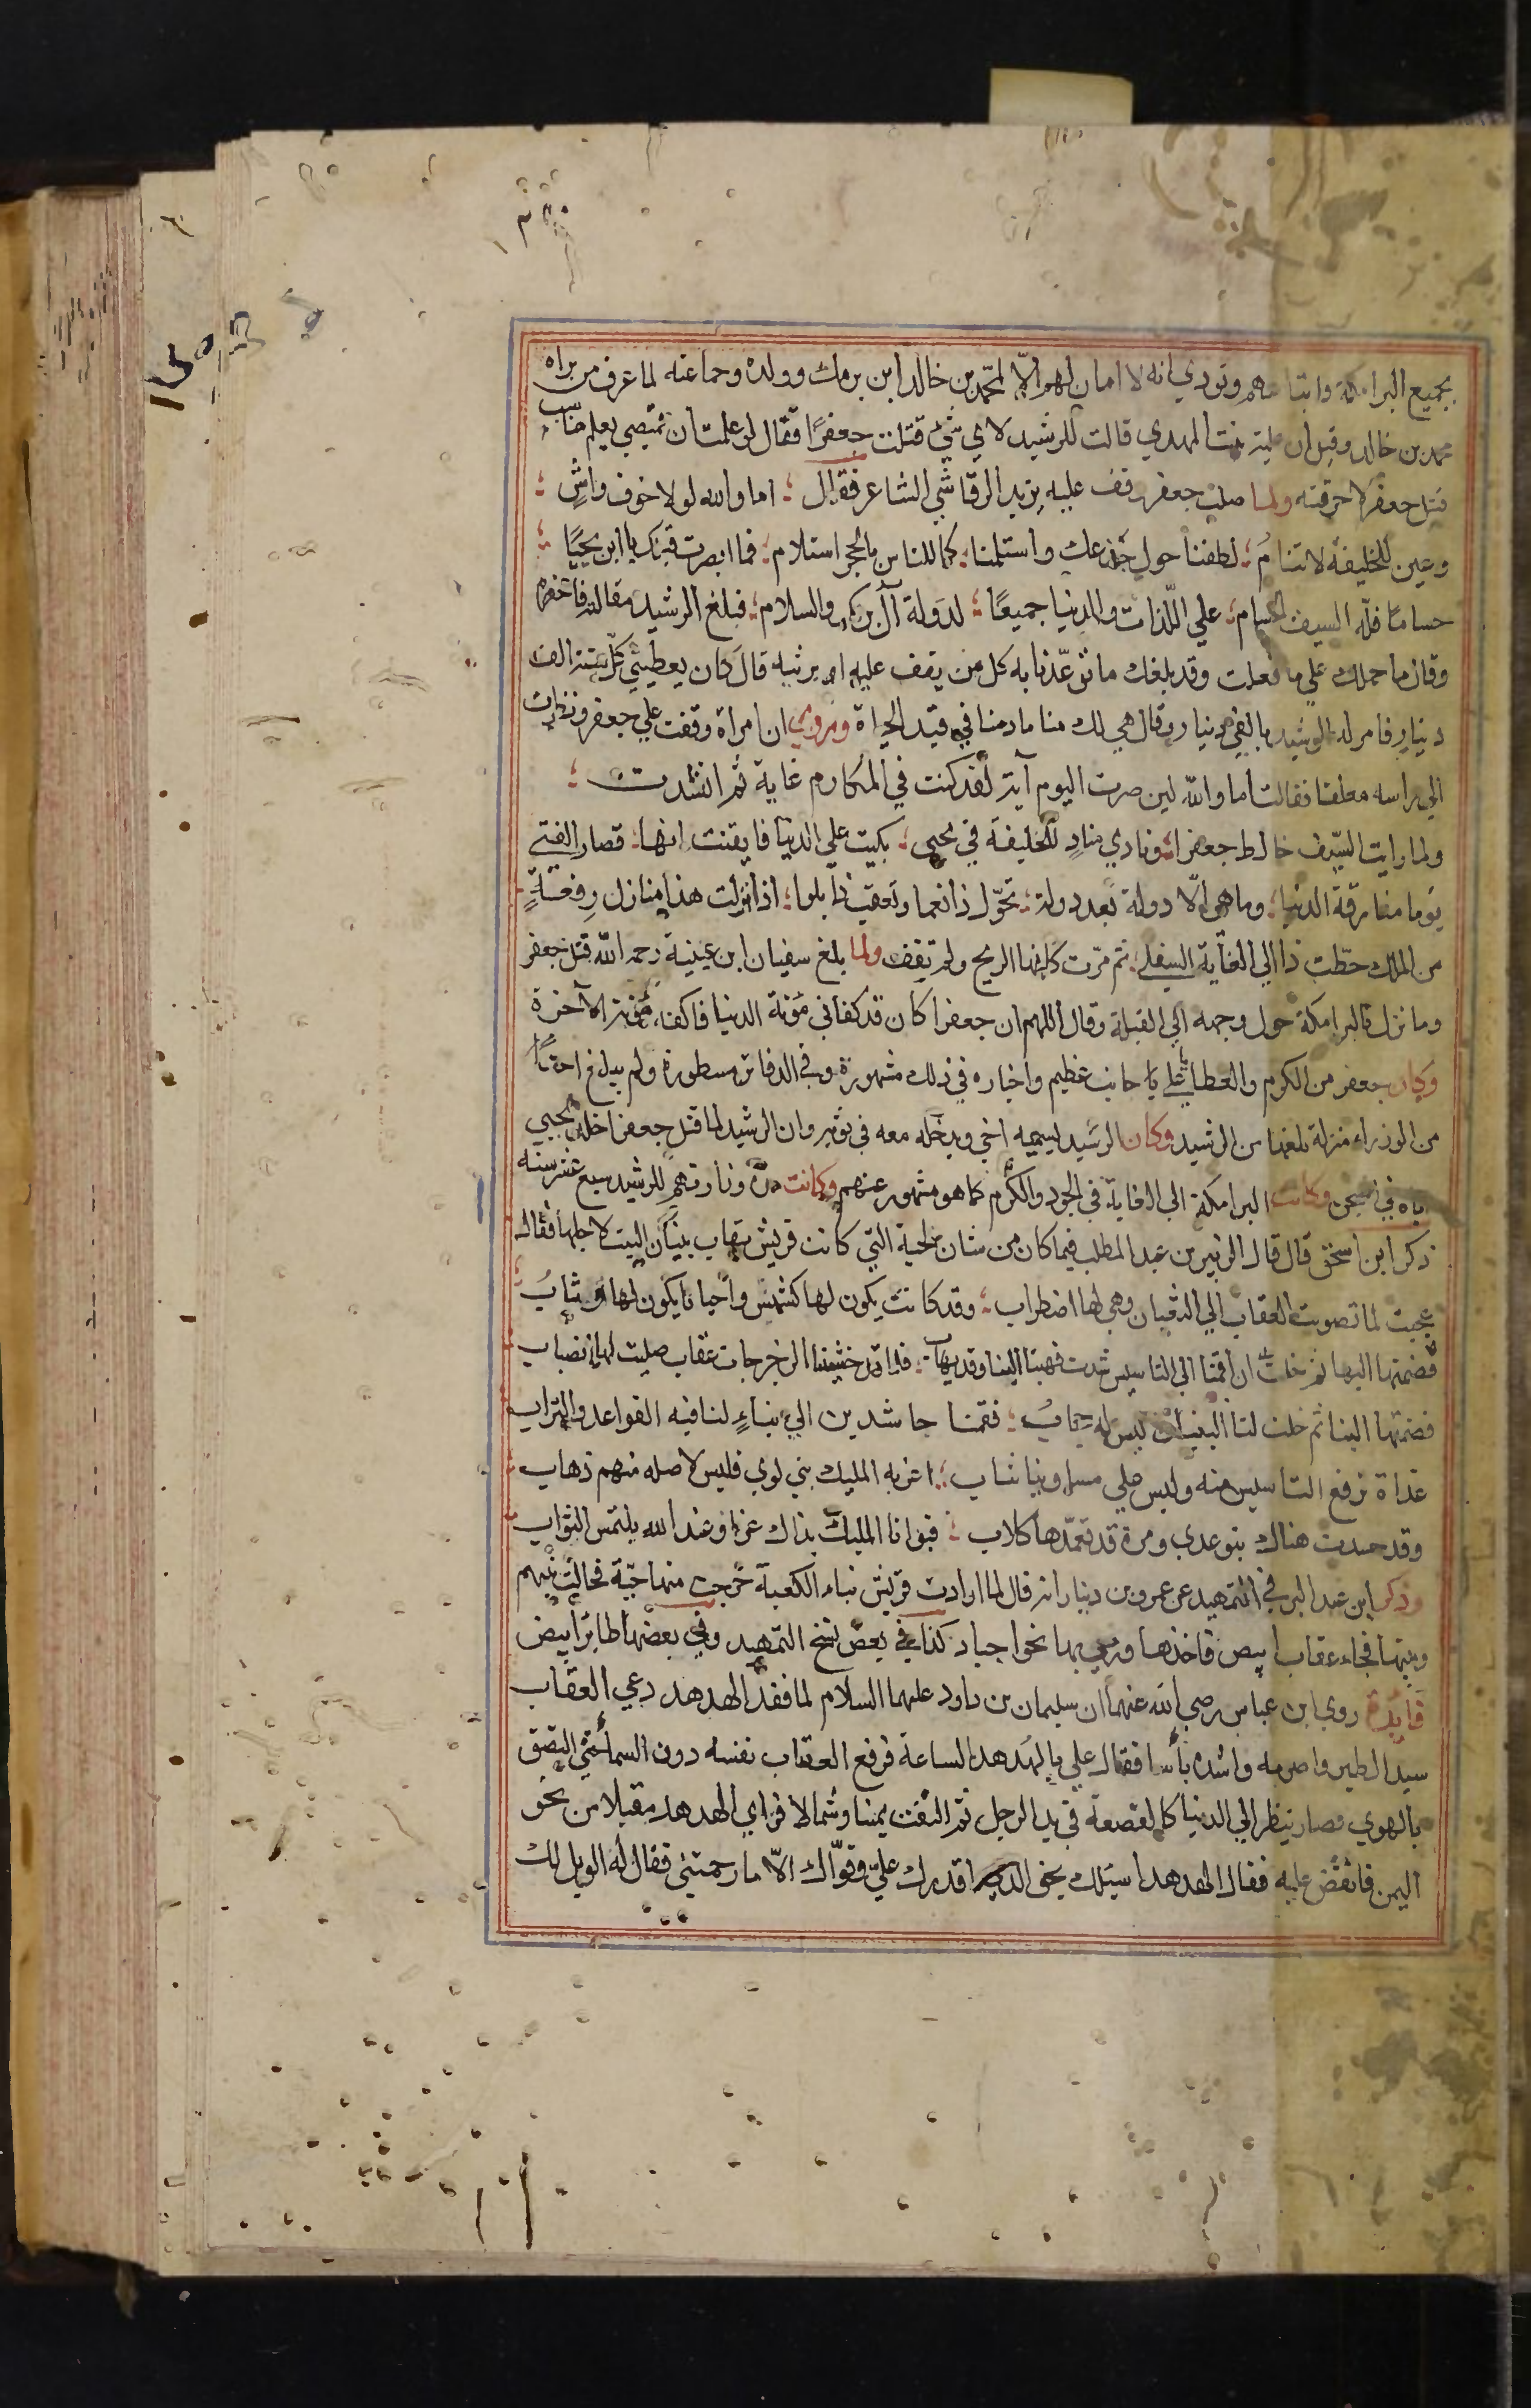 بجميع البرامكة واتباعهم ونودي انه لا امان لهم الّا لمحمد بن خالد ابن برمك وولده وجماعته لما عرف من براه
محمد بن خالد وقيل ان علية بنت المهدي قالت للرشيد لاي شئ قتلت جعفرًا فقال لو علمت ان قميصي يعلم مناسب
قتل جعفر لاحرقته ولما صلب جعفر وقف عليه يزيد الرقاشي الشاعر فقال ؛ اما والله لولا خوف واشٍ ؛
وعين للخليفة لا تنامُ ؛ لطفنا حول جذعك واستلمنا ؛ كما للناس بالحجر استلام ؛ فما ابصرت قبلك يا ابن يحيًا ؛
حسامًا فلّه السيف الحسام ؛ علي اللّذات والدنيا جميعًا ؛ لدولة آل برمك والسلام ؛ فبلغ الرشيد مقالته فاحضره
وقال ما حملك علي ما فعلت وقد بلغك ما توعّدنا به كل من يقف عليه او يرثيه قال كان يعطيني كل سنة الف
دينار فامر له الرشيد بالفي دينار وقال هي لك منا ما دمنا في قيد الحياة وروي ان امراة وقفت علي جعفر ونظرت
الي راسه معلقا فقالت اما والله لين صرت اليوم آية لقد كنت في المكارم غاية ثم انشدت ؛
ولما رايت السيف خالط جعفرا ؛ ونادي منادٍ للخليفة في يحيي ؛ بكيت علي الدنيا فايقنت انها ؛ قصار الفتي
يوما مفارقة الدنيا ؛ وما هي الّا دولة بعد دولة ؛ تحوّل ذا نعما وتعقب ذا بلوا ؛ اذا انزلت هذا منازل رفعةٍ
من الملك حطّت ذا الي الغاية السفلي ؛ ثم مرّت كانها الريح ولم تقف ولما بلغ سفيان ابن عيينة رحمه الله قتل جعفر
وما نزل بالبرامكة حول وجهه الي القبلة وقال اللهم ان جعفرا كان قد كفاني مؤنة الدنيا فاكفه مؤنة الاخرة
وكان جعفر من الكرم والعطايا علي جانب عظيم واخباره في ذلك مشهورة وفي الدفاتر مسطورة ولم يبلغ احدًا
من الوزراء منزلة بلغها من الرشيد وكان الرشيد يسميه اخي ويدخله معه في ثوبه وان الرشيد لما قتل جعفرا خلد يحيي
اباه في السجن وكانت البرامكة الي الغاية في الجود والكرم كما هو مشهور عنهم وكانت مدة وزارتهم للرشيد سبع عشر سنه
ذكر ابن اسحق قال قال الزبير بن عبد المطلب فيما كان من شان الحية التي كانت قريش تهاب بنيان البيت لاجلها فقال
عجبت لما تصوبت العقاب الي الثعبان وهي لها اضطراب ؛ وقد كانت يكون لها كشيش واحيانا يكون لها وثابُ ؛
فضمتها اليها ثم خلت
فضمتها الينا ثم خلت لنا البنيان ليس له حجابُ ؛ فقمنا حاشدين الي بناءٍ لنا فيه القواعد والتراب
غداة نرفع التاسيس منه وليس علي مساوينا ثياب ؛ اعز به المليك بني لوي فليس لاصله منهم ذهاب
وقد حشدت هناك بنو عدي ومرة قد تعمّدها كلاب ؛ فبوانا المليك بذاك عزا وعند الله يلتمس الثواب
وذكر ابن عبد البر في التمهيد عن عمرو بن دينار انه قال لما ارادت قريش بناء الكعبة خرجت منها حيّة فحالت بينهم
وبينها فجاء عقاب ابيض فاخذها ورمي بها نحو اجياد كذا في بعض نسخ التمهيد وفي بعضها طائر ابيض
فائدة روي ابن عباس رضي الله عنهما ان سليمان بن داود عليهما السلام لما فقد الهدهد دعي العقاب
سيد الطير واصرمه واشده باسا فقال علي بالهدهد الساعة فرفع العقاب نفسه دون السماء حتي التصق
بالهوي فصار ينظر الي الدنيا كالقصعة في يد الرجل ثم التفت يمينا وشمالا فراي الهدهد مقبلا من نحو
اليمن فانقض عليه فقال الهدهد اسئلك بحق الذي اقدرك عليّ وقوّاك الّا ما رحمتني فقال له الويل لك